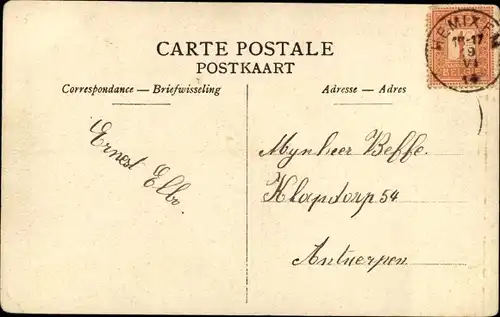 CARTE POSTALE
POSTKAART
Correspondance — Briefwisseling
Adresse — Adres
Ernest Elbo.
Mynheer Beffe.
Klapdorp 54
Antwerpen
HEMIXEM
17
9
VI